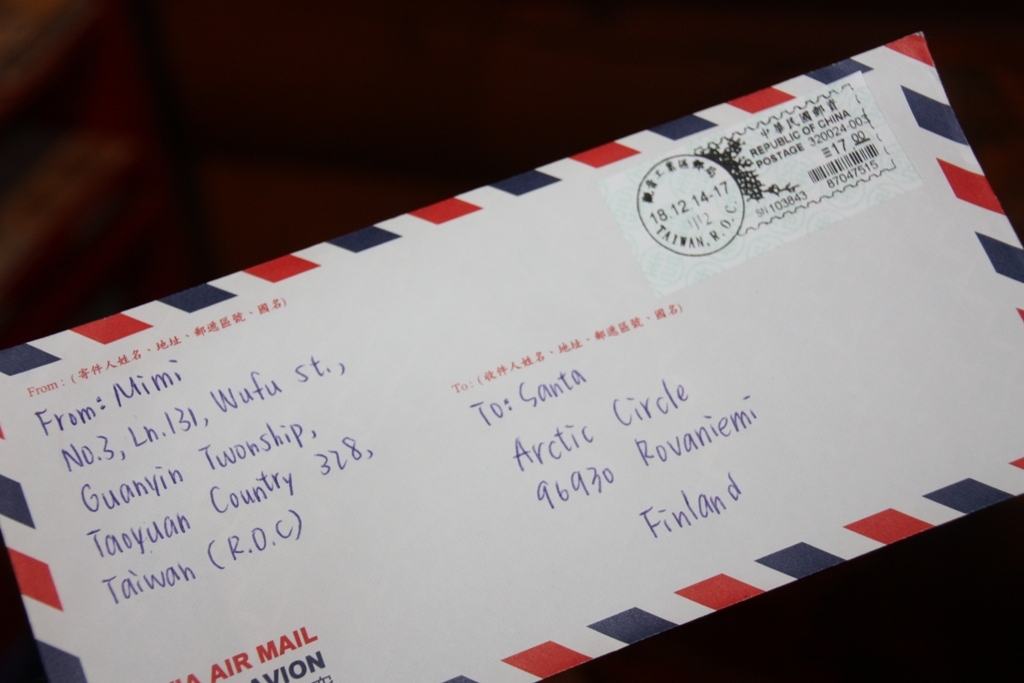 中華民國郵資
REPUBLIC OF CHINA
POSTAGE 320024-003
17 00
87047515
SN 103843
觀音工業區郵局
18.12.14-17
TAIWAN, R.O.C.
From: (寄件人姓名、地址、郵遞區號、國名)
From: Mimi
No.3, Ln.131, Wufu st.,
Guanyin Twonship,
Taoyuan Country 328,
Taiwan (R.O.C)
To: (收件人姓名、地址、郵遞區號、國名)
To: Santa
Arctic Circle
96930 Rovaniemi
Finland
AIR MAIL
AVION